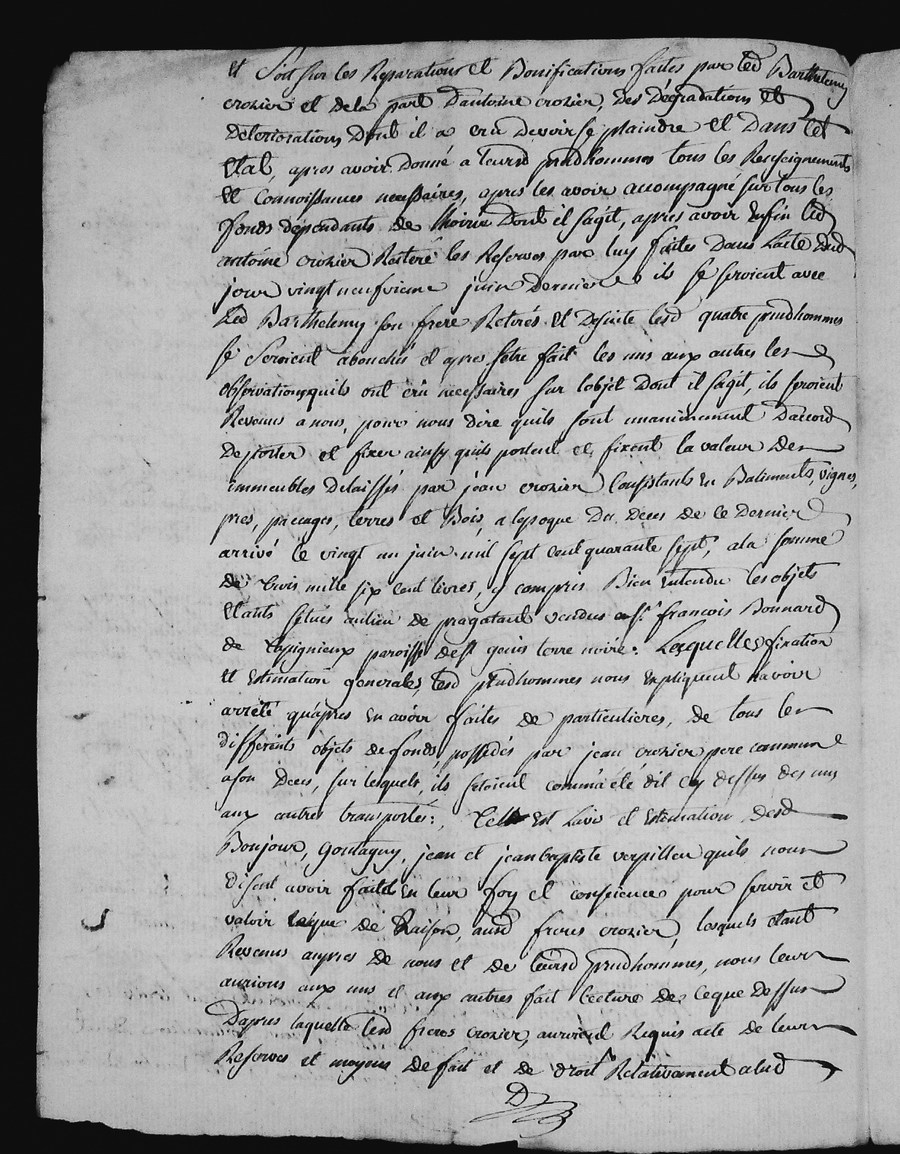 et Soit sur les Reparations et Bonifications faites par led Barthelemy
crozier et de la part Dantoine crozier, des Dégradations et
Deteriorations Dont il a cru devoir se plaindre et Dans cet
Etat, apres avoir Donné a leursd prudhommes tous les Renseignements
et Connoissances necessaires, apres les avoir accompagné sur tous les
fonds dépendants de lhoirie Dont il sagit, apres avoir Enfin led
antoine crozier Reiteré les Reserves par luy faites Dans lacte dud
jour vingt neufvieme juin Dernier ils se seroient avec
led Barthelemy son frere Retirés et desuite lesd quatre prudhommes
se seroient abouchés et apres setre fait les uns aux autres les
observations quils ont cru necessaires sur lobjet Dont il sagit, ils seroient
Revenus a nous, pour nous dire quils sont unanimement Daccord
De porter et fixer ainsy quils portent et fixent la valeur des
immeubles Delaissés par jean crozier Consistants en Batiments, vignes,
pres, paccages, terres et Bois, a lepoque Du Deces de ce Dernier
arrivé le vingt un juin mil sept cent quarante sept, a la somme
de trois mille six cent livres, y compris Bien entendu les objets
Etants situés au lieu de pragataud vendus a sr. francois Bonnard
de paroisse de st genis terre noire: Lesquelles fixation
et estimation generales, lesd prudhommes nous expliquent navoir
arrêté quapres en avoir faites de particulieres, de tous les
différents objets de fonds, possedés par jean crozier pere commun
a son Deces, sur lesquels, ils setoient comm'a été dit cy dessus des uns
aux autres transportés: Telle est Lavis et estimation desd
Bonjour, Gontagny, jean et jean baptiste verpilleu quils nous
disent avoir faite en leur foy et conscience pour servir et
valoir ceque de Raison, ausd freres crozier, lesquels étant
Revenus aupres de nous et de leursd prudhommes, nous leurs
aurions aux uns et aux autres fait lecture de ceque Dessus
Dapres laquelle lesd freres crozier, auroient Requis acte de leurs
Reserves et moyens de fait et de droit Relativement alad